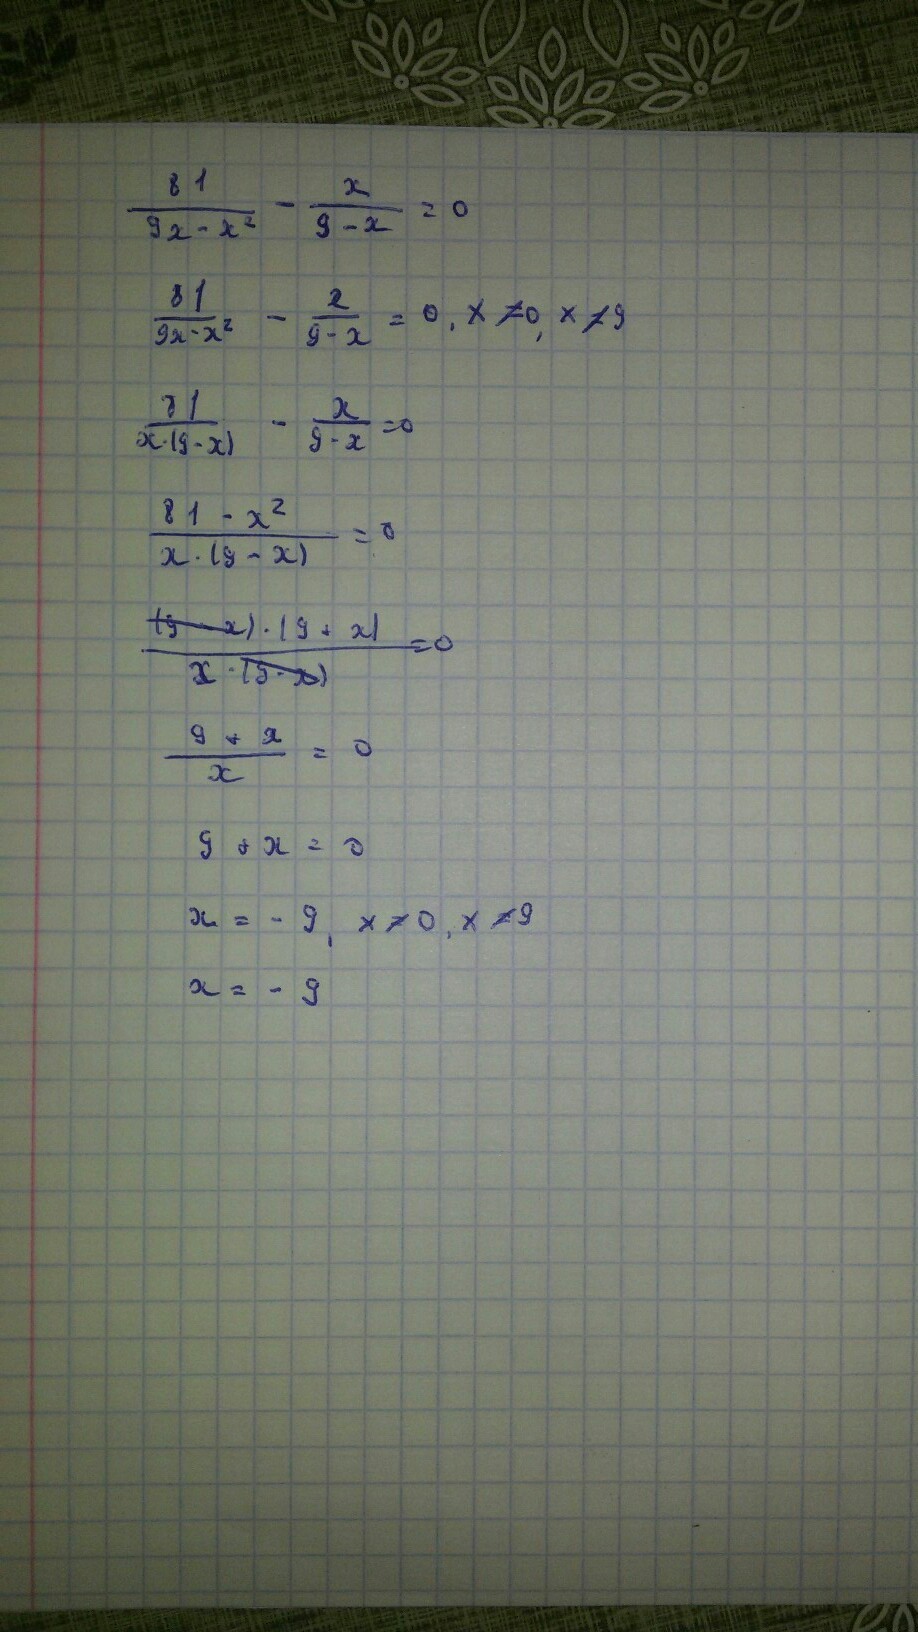 81/(9x - x²) - x/(9 - x) = 0
81/(9x - x²) - x/(9 - x) = 0, x ≠ 0, x ≠ 9
81/(x·(9 - x)) - x/(9 - x) = 0
(81 - x²)/(x·(9 - x)) = 0
((9 - x)·(9 + x))/(x·(9 - x)) = 0
(9 + x)/x = 0
9 + x = 0
x = - 9, x ≠ 0, x ≠ 9
x = - 9